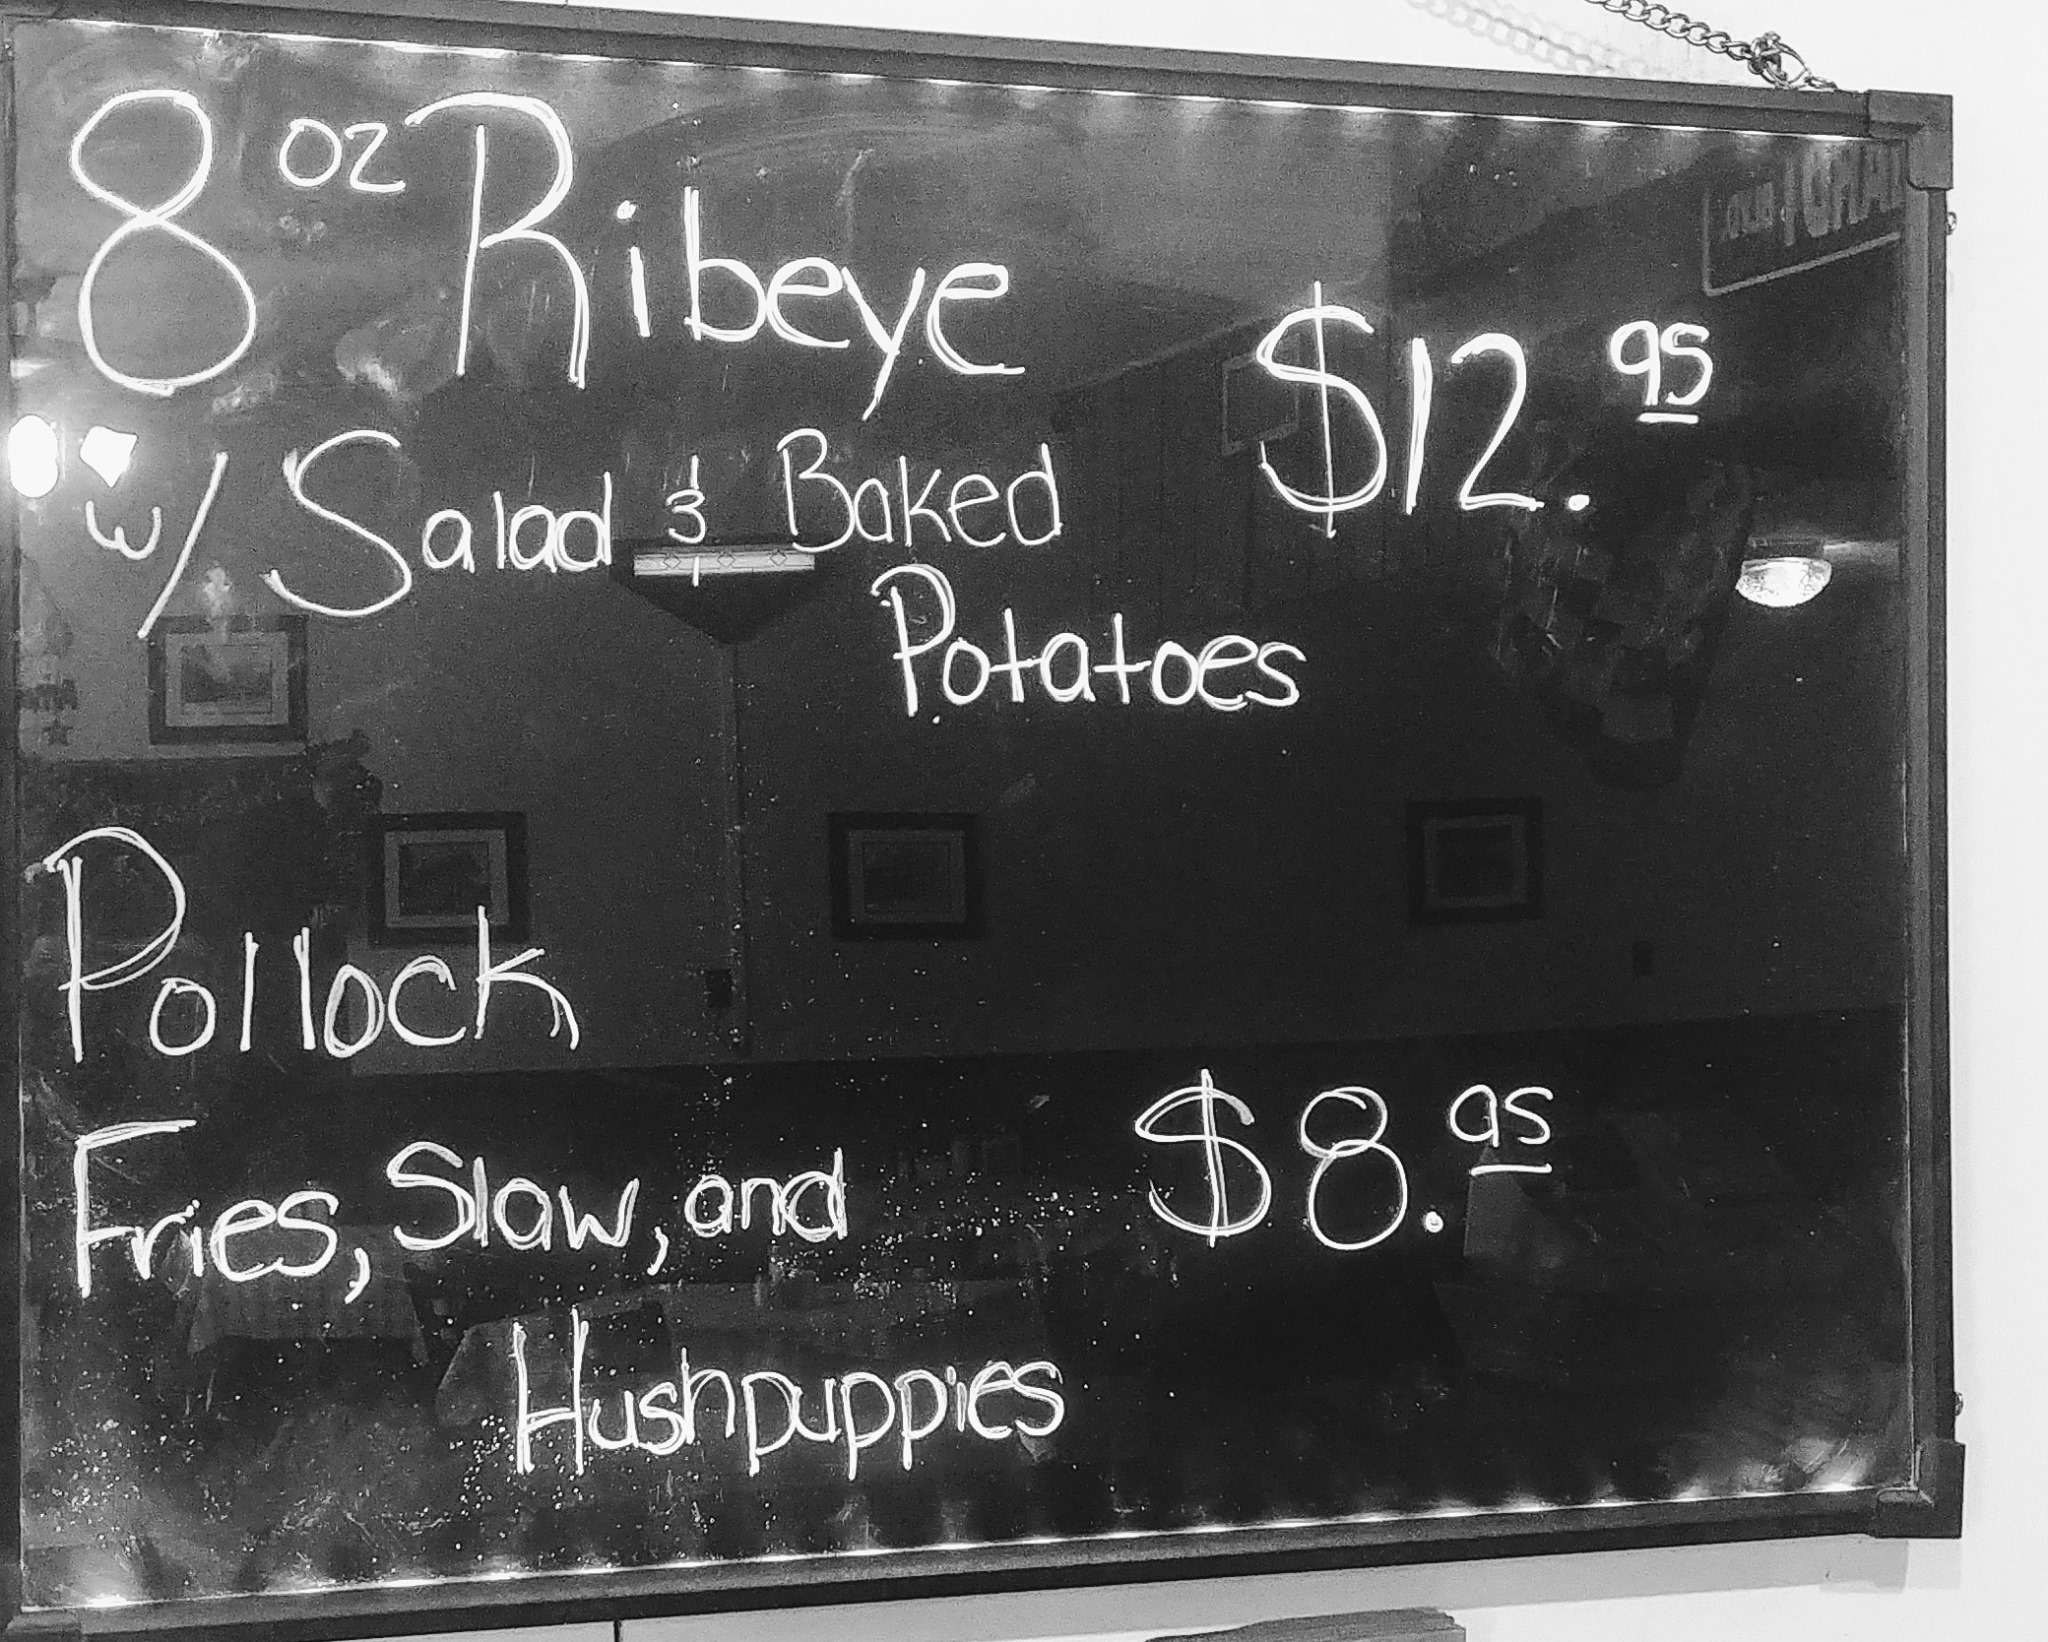 8 oz Ribeye
$12.95
w/ Salad & Baked
Potatoes
Pollock,
Fries, Slaw, and
$8.95
Hushpuppies